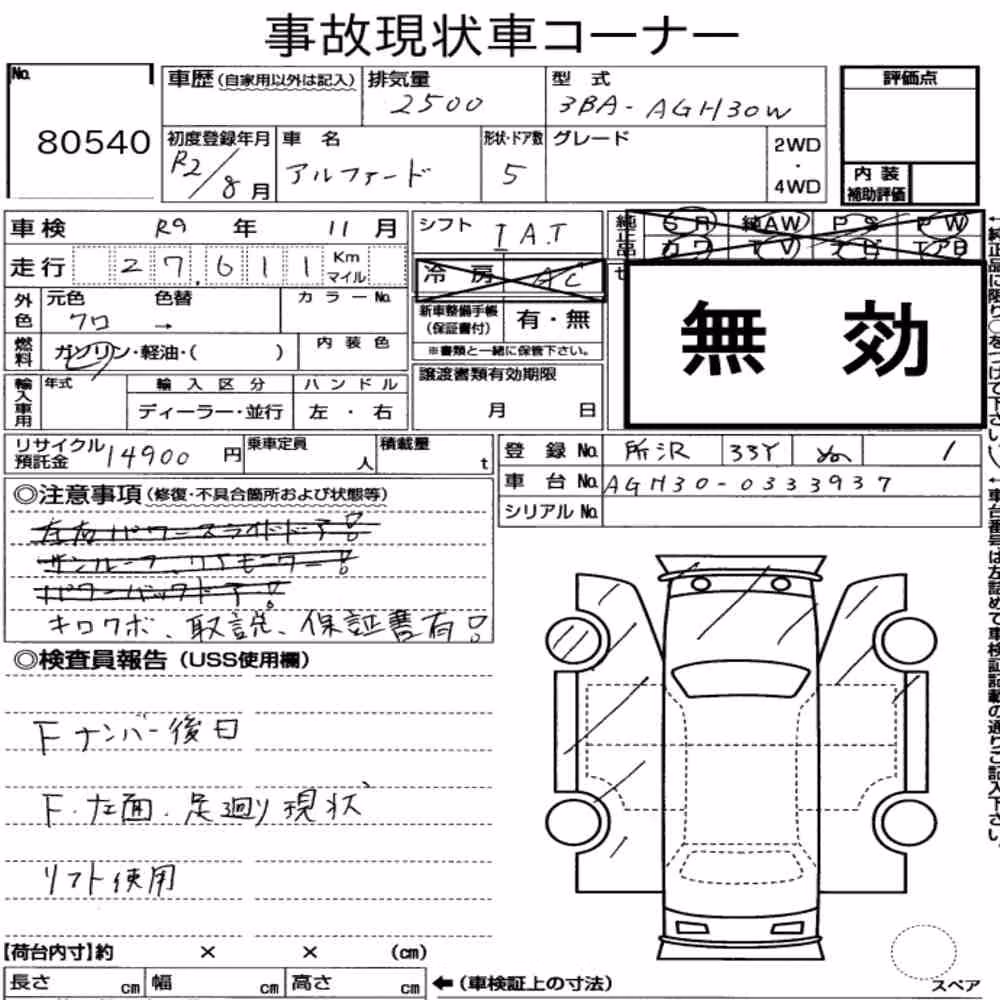 事故現状車コーナー
No.
80540
車歴(自家用以外は記入)
排気量
2500
型式
3BA-AGH30W
評価点
初度登録年月
R2/8月
車名
アルファード
形状・ドア数
5
グレード
2WD
・
4WD
内装
補助評価
車検 R9年 11月
走行 27,611 Km
マイル
シフト
I A.T
純正品
SR 純AW PS PW
カワ TV ナビ エアB
冷房 AC
無効
外色
元色 色替
クロ →
カラーNo.
新車整備手帳
(保証書付)
有・無
※書類と一緒に保管下さい。
燃料
ガソリン・軽油・( )
内装色
輸入車用
年式
輸入区分
ディーラー・並行
ハンドル
左・右
譲渡書類有効期限
月 日
←純正品に限り○をつけて下さい。
リサイクル
預託金
14900円
乗車定員
人
積載量
t
登録No. 所沢 33Y ぬ 1
車台No. AGH30-0333937
シリアルNo.
←車台番号は左詰めで車検証記載の通りご記入下さい。
◎注意事項(修復・不具合箇所および状態等)
左右パワースライドドア!
サンルーフ、リアモニター!
パワーバックドア!
キロクボ、取説、保証書有!
◎検査員報告(USS使用欄)
Fナンバー後日
F・左面・足廻り現状
リフト使用
【荷台内寸】約 × × (cm)
長さ cm 幅 cm 高さ cm ←(車検証上の寸法)
スペア